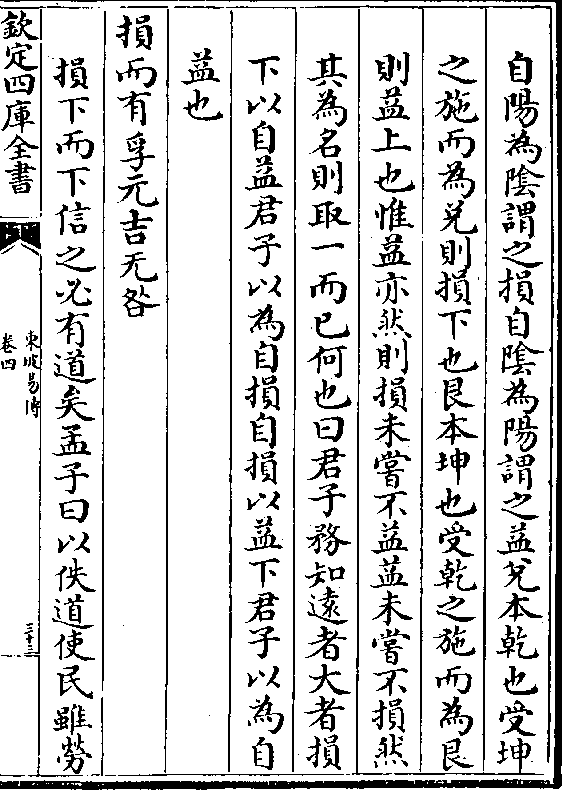 自陽為陰謂之損自陰為陽謂之益兌本乾也受坤
之施而為兌則損下也艮本坤也受乾之施而為艮
則益上也惟益亦然則損未嘗不益益未嘗不損然
其為名則取一而已何也曰君子務知遠者大者損
下以自益君子以為自損自損以益下君子以為自
益也
損而有孚元吉无咎
損下而下信之必有道矣孟子曰以佚道使民雖勞
欽定四庫全書
東坡易傳
卷四
三十三